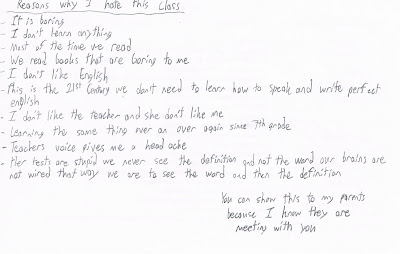 Reasons why I hate this class
- It is boring
- I don't learn anything
- Most of the time we read
- We read books that are boring to me
- I don't like English
- This is the 21st Century we don't need to learn how to speak and write perfect
english
- I don't like the teacher and she don't like me
- Learning the same thing over an over again since 7th grade
- Teachers voice gives me a head ache
- Her tests are stupid we never see the definition and not the word our brains are
not wired that way we are to see the word and then the definition
You can show this to my parents
because I know they are
meeting with you